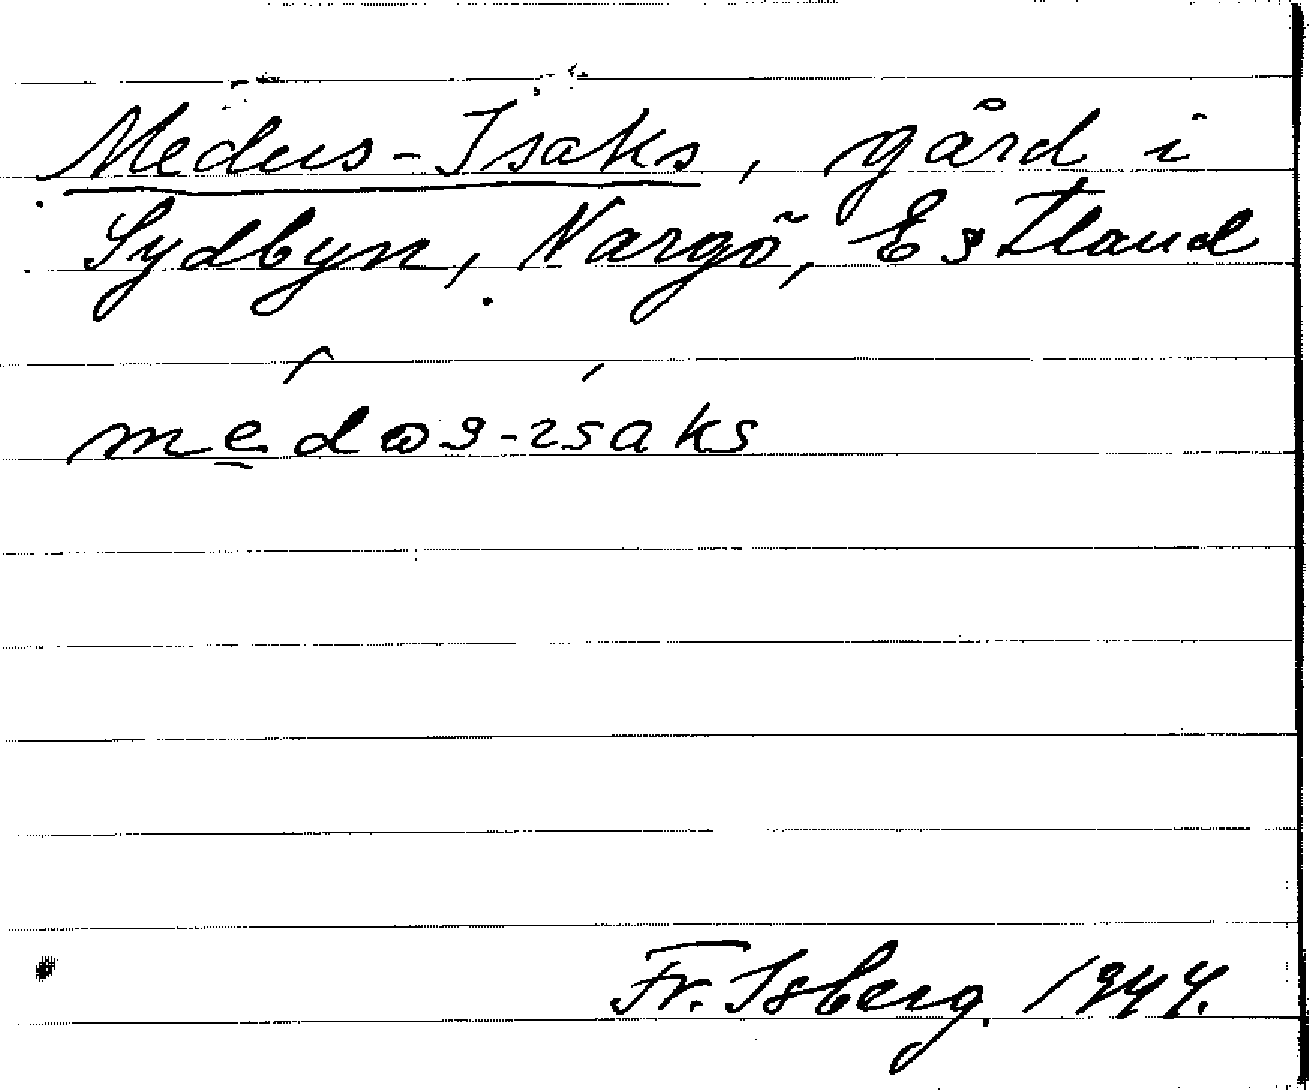 Medus-Isaks, gård i
Sydbyn, Nargö, Estland
médωs-ísaks
Fr. Isberg. 1944.